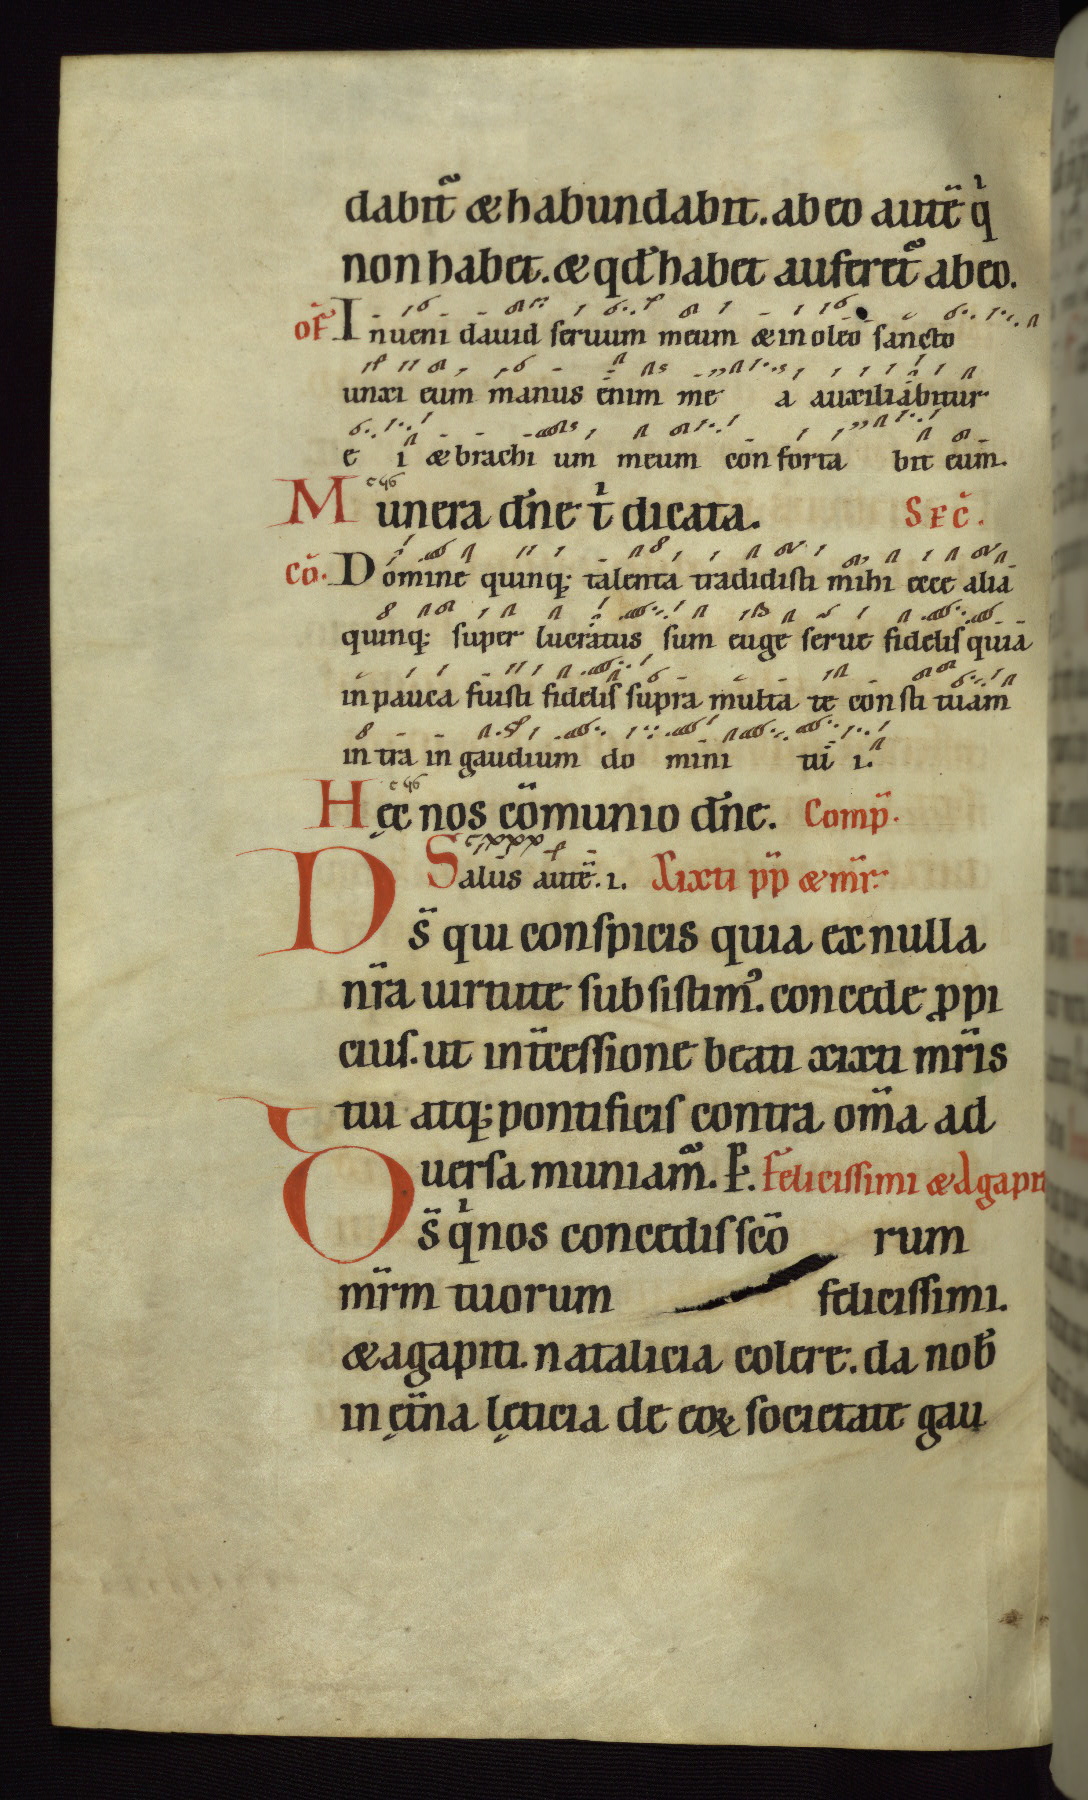 dabit᷑ & habundabit. ab eo autē qͥ
non habet. & qđ habet auferet᷑ ab eo.
of̄ Inueni dauid seruum meum & in oleo sancto
unxi eum manus enim me a auxiliabitur
e i & brachi um meum con forta bit eum.
Munera dn̄e tͥ dicata. Sec̄.
Cō. Domine quinq; talenta tradidisti mihi ecce alia
quinq; super lucratus sum euge serue fidelis quia
in pauca fuisti fidelis supra multa te con sti tuam
in tra in gaudium do mini tui i.
Hęc nos cōmunio dn̄e. Comp̄.
Salus autē. i. Xixti pp̄ & mr̄.
Ds̄ qui conspicis quia ex nulla
nr̄a uirtute subsistimꝰ. concede ꝓpi
cius. ut int̄cessione beati xixti mr̄is
tui atq; pontificis contra om̄a ad
uersa muniam᷑. P. Felicissimi & Agapiti
Ds̄ qͥ nos concedis scō rum
mr̄m tuorum felicissimi.
& agapiti. natalicia colere. da nob̄
in ęt̄na lęticia de eoꝝ societate gau